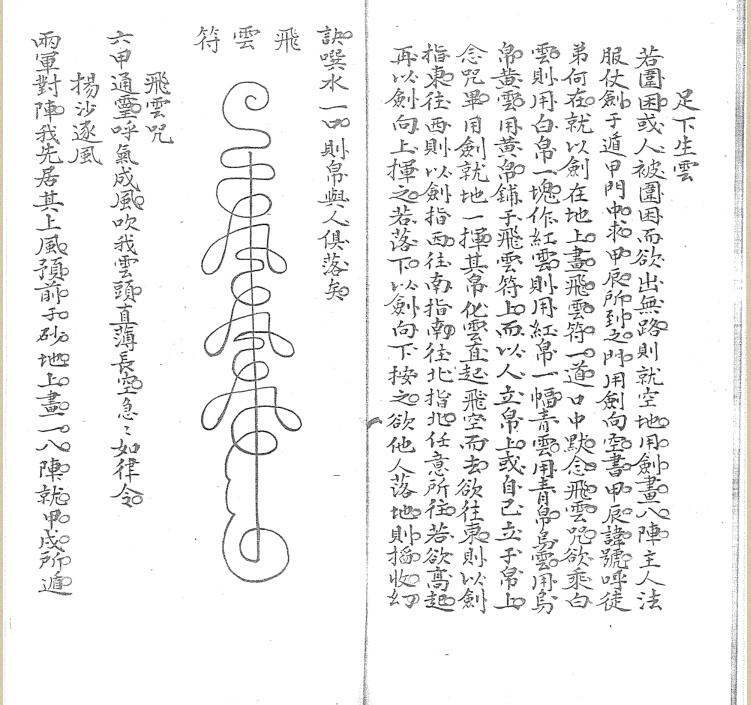 足下生雲
若圍困或人被圍困而欲出無路則就空地用劍畫八陣主人法
服仗劍于遁甲門中求甲辰所到之門用劍向空書甲辰諱號呼徒
弟何在就以劍在地上畫飛雲符一道口中默念飛雲咒欲乘白
雲則用白帛一塊作紅雲則用紅帛一幅青雲用青帛烏雲用烏
帛黃雲用黃帛鋪于飛雲符上而以人立帛上或自己立于帛上
念咒畢用劍就地一揮其帛化雲直起飛空而去欲往東則以劍
指東往西則以劍指西往南指南往北指北任意所往若欲高起
再以劍向上揮之若落下以劍向下按之欲他人落地則掐收幻
訣噀水一口則帛與人俱落矣
飛雲符
飛雲咒
六甲通靈呼氣成風吹我雲頭直薄長空急々如律令
揚沙逐風
兩軍對陣我先居其上風預前于砂地上畫一八陣就甲戌所遁